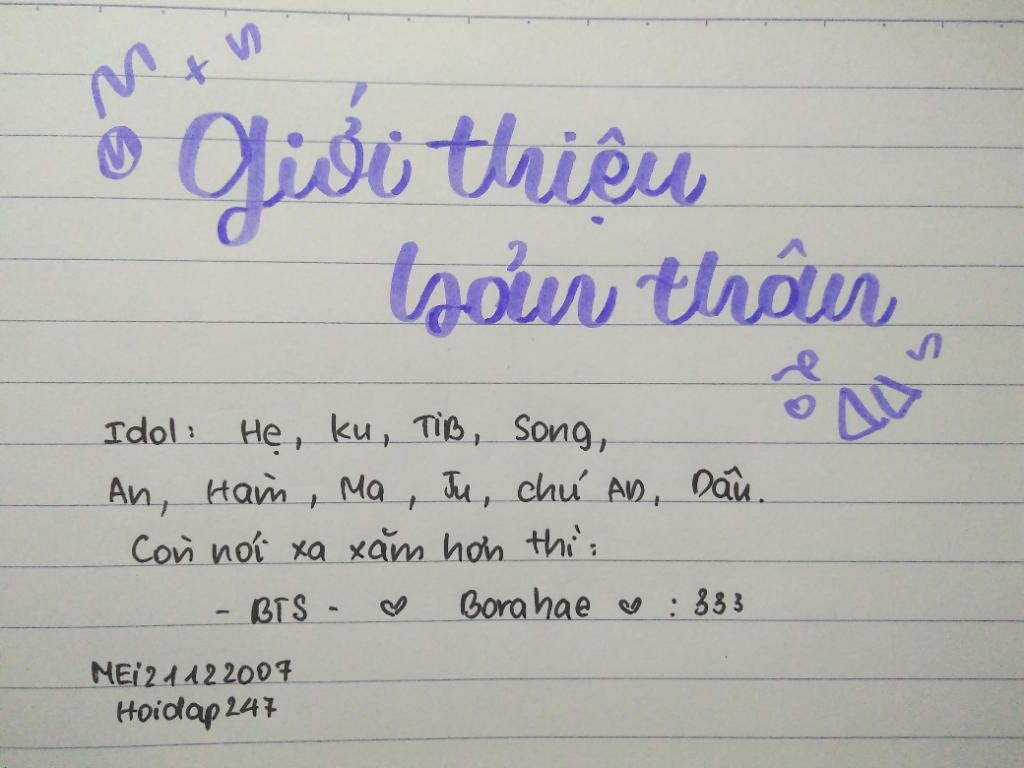 Giới thiệu
bản thân
Idol: Hẹ, Ku, TiB, Song,
An, Hàm, Ma, Ju, chú AD, Dâu.
Còn nói xa xăm hơn thì:
- BTS - ♡ Borahae ♡ : 333
MEi21122007
Hoidap247